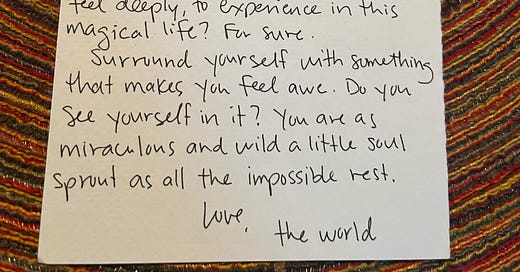 feel deeply, to experience in this
magical life? For sure.
Surround yourself with something
that makes you feel awe. Do you
see yourself in it? You are as
miraculous and wild a little soul
sprout as all the impossible rest.
Love,
the world